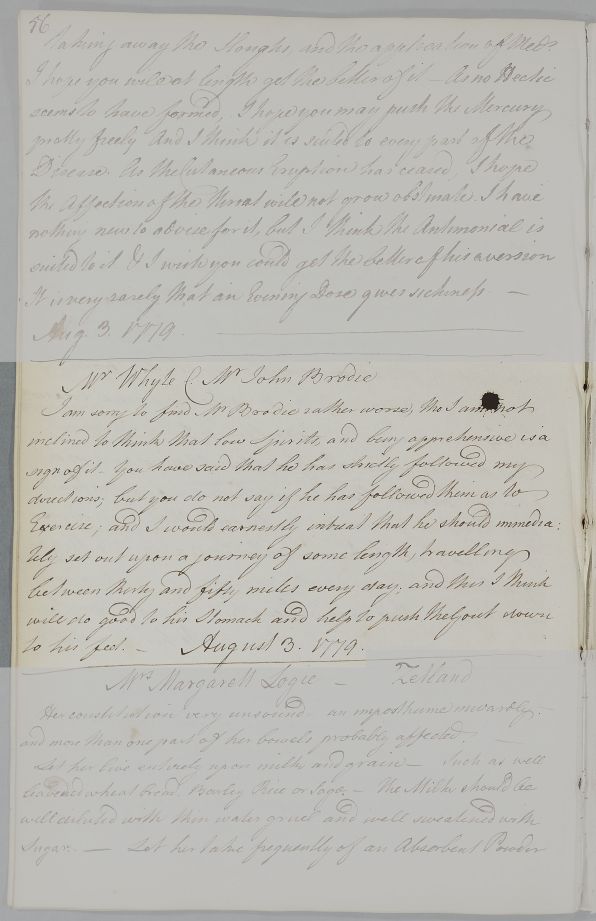 56
taking away the Sloughs, and the application of Med:
I hope you will at length get the better of it — As no Hectic
seems to have formed, I hope you may push the Mercury
pretty freely And I think it is suited to every part of the
Disease. As the Cutaneous Eruption has ceased, I hope
the Affection of the throat will not grow obstinate. I have
nothing new to advise for it, but I think the Antimonial is
suited to it & I wish you could get the better of his aversion
It is very rarely that an Evening Dose gives sickness —
Aug. 3. 1779.
Mr Whyte C. Mr John Brodie
I am sorry to find Mr Brodie rather worse, tho I am not
inclined to think that low spirits, and being apprehensive is a
sign of it — You have said that he has strictly followed my
directions; but you do not say if he has followed them as to
Exercise; and I would earnestly intreat that he should immedia:
tely set out upon a journey of some length, travelling
between thirty and fifty miles every day; and this I think
will do good to his Stomach and help to push the Gout down
to his feet. — August 3. 1779.
Mrs Margarett Logie — Zetland
Her constitution very unsound — an imposthume inwardly, —
and more than one part of her bowels probably affected. —
Let her live entirely upon milk and grains — Such as well
leavened wheat bread, Barley Rice or Sago — The Milk should be
well diluted with thin water gruel and well sweetened with
Sugar. — Let her take frequently of an Absorbent Powder